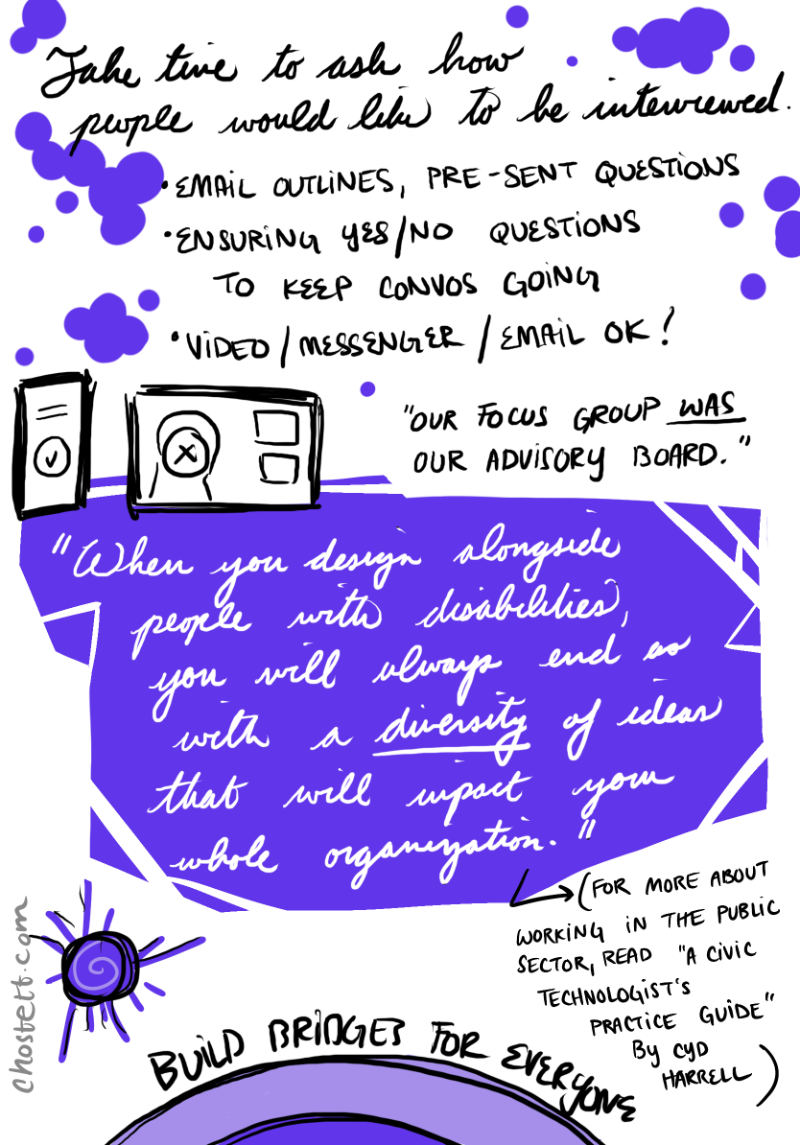 Take time to ask how
people would like to be interviewed.
• EMAIL OUTLINES, PRE-SENT QUESTIONS
• ENSURING YES/NO QUESTIONS
TO KEEP CONVOS GOING
• VIDEO / MESSENGER / EMAIL OK!
"OUR FOCUS GROUP WAS
OUR ADVISORY BOARD."
"When you design alongside
people with disabilities,
you will always end as
with a diversity of ideas
that will impact your
whole organization."
(FOR MORE ABOUT
WORKING IN THE PUBLIC
SECTOR, READ "A CIVIC
TECHNOLOGIST'S
PRACTICE GUIDE"
By CYD
HARRELL)
BUILD BRIDGES FOR EVERYONE
chostett.com